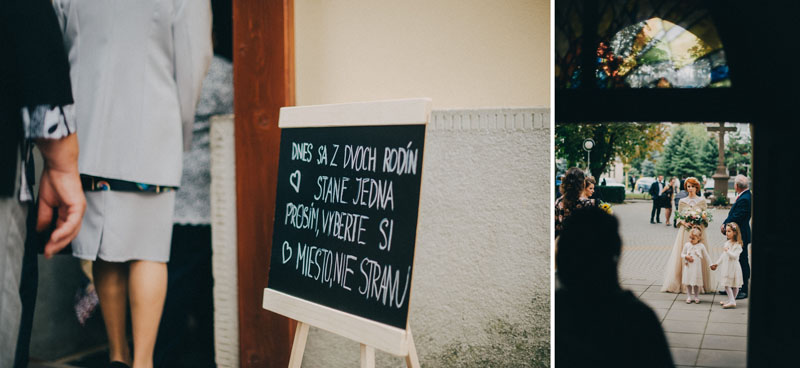 DNES SA Z DVOCH RODÍN
STANE JEDNA
PROSÍM, VYBERTE SI
MIESTO, NIE STRANU